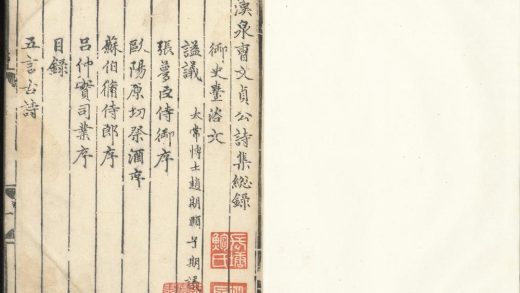 漢泉曹文貞公詩集総録
御史臺咨文
謚議 太常博士趙期頤子期議
張夢臣侍御序
歐陽原功祭酒序
蘇伯脩侍郎序
呂仲實司業序
目録
五言古詩
長塘
鮑氏